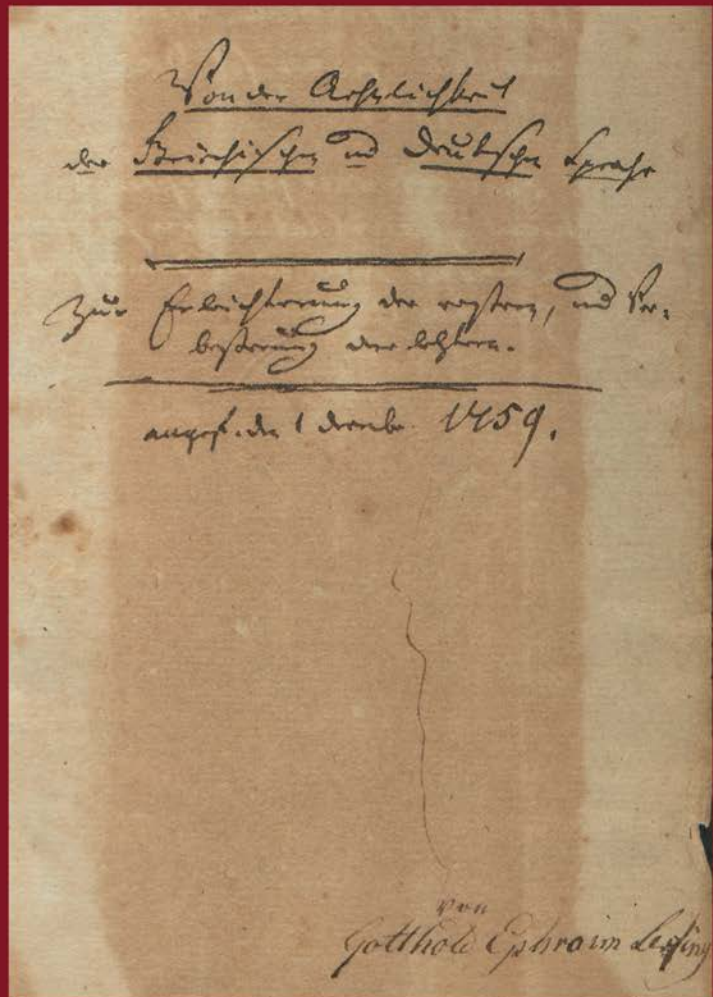 Von der Aehnlichkeit
der Griechischen und Deutschen Sprache
Zur Erleichterung der erstern, und Ver-
besserung der letztern.
angef. den 1 Decembr. 1759.
von
Gotthold Ephraim Lessing